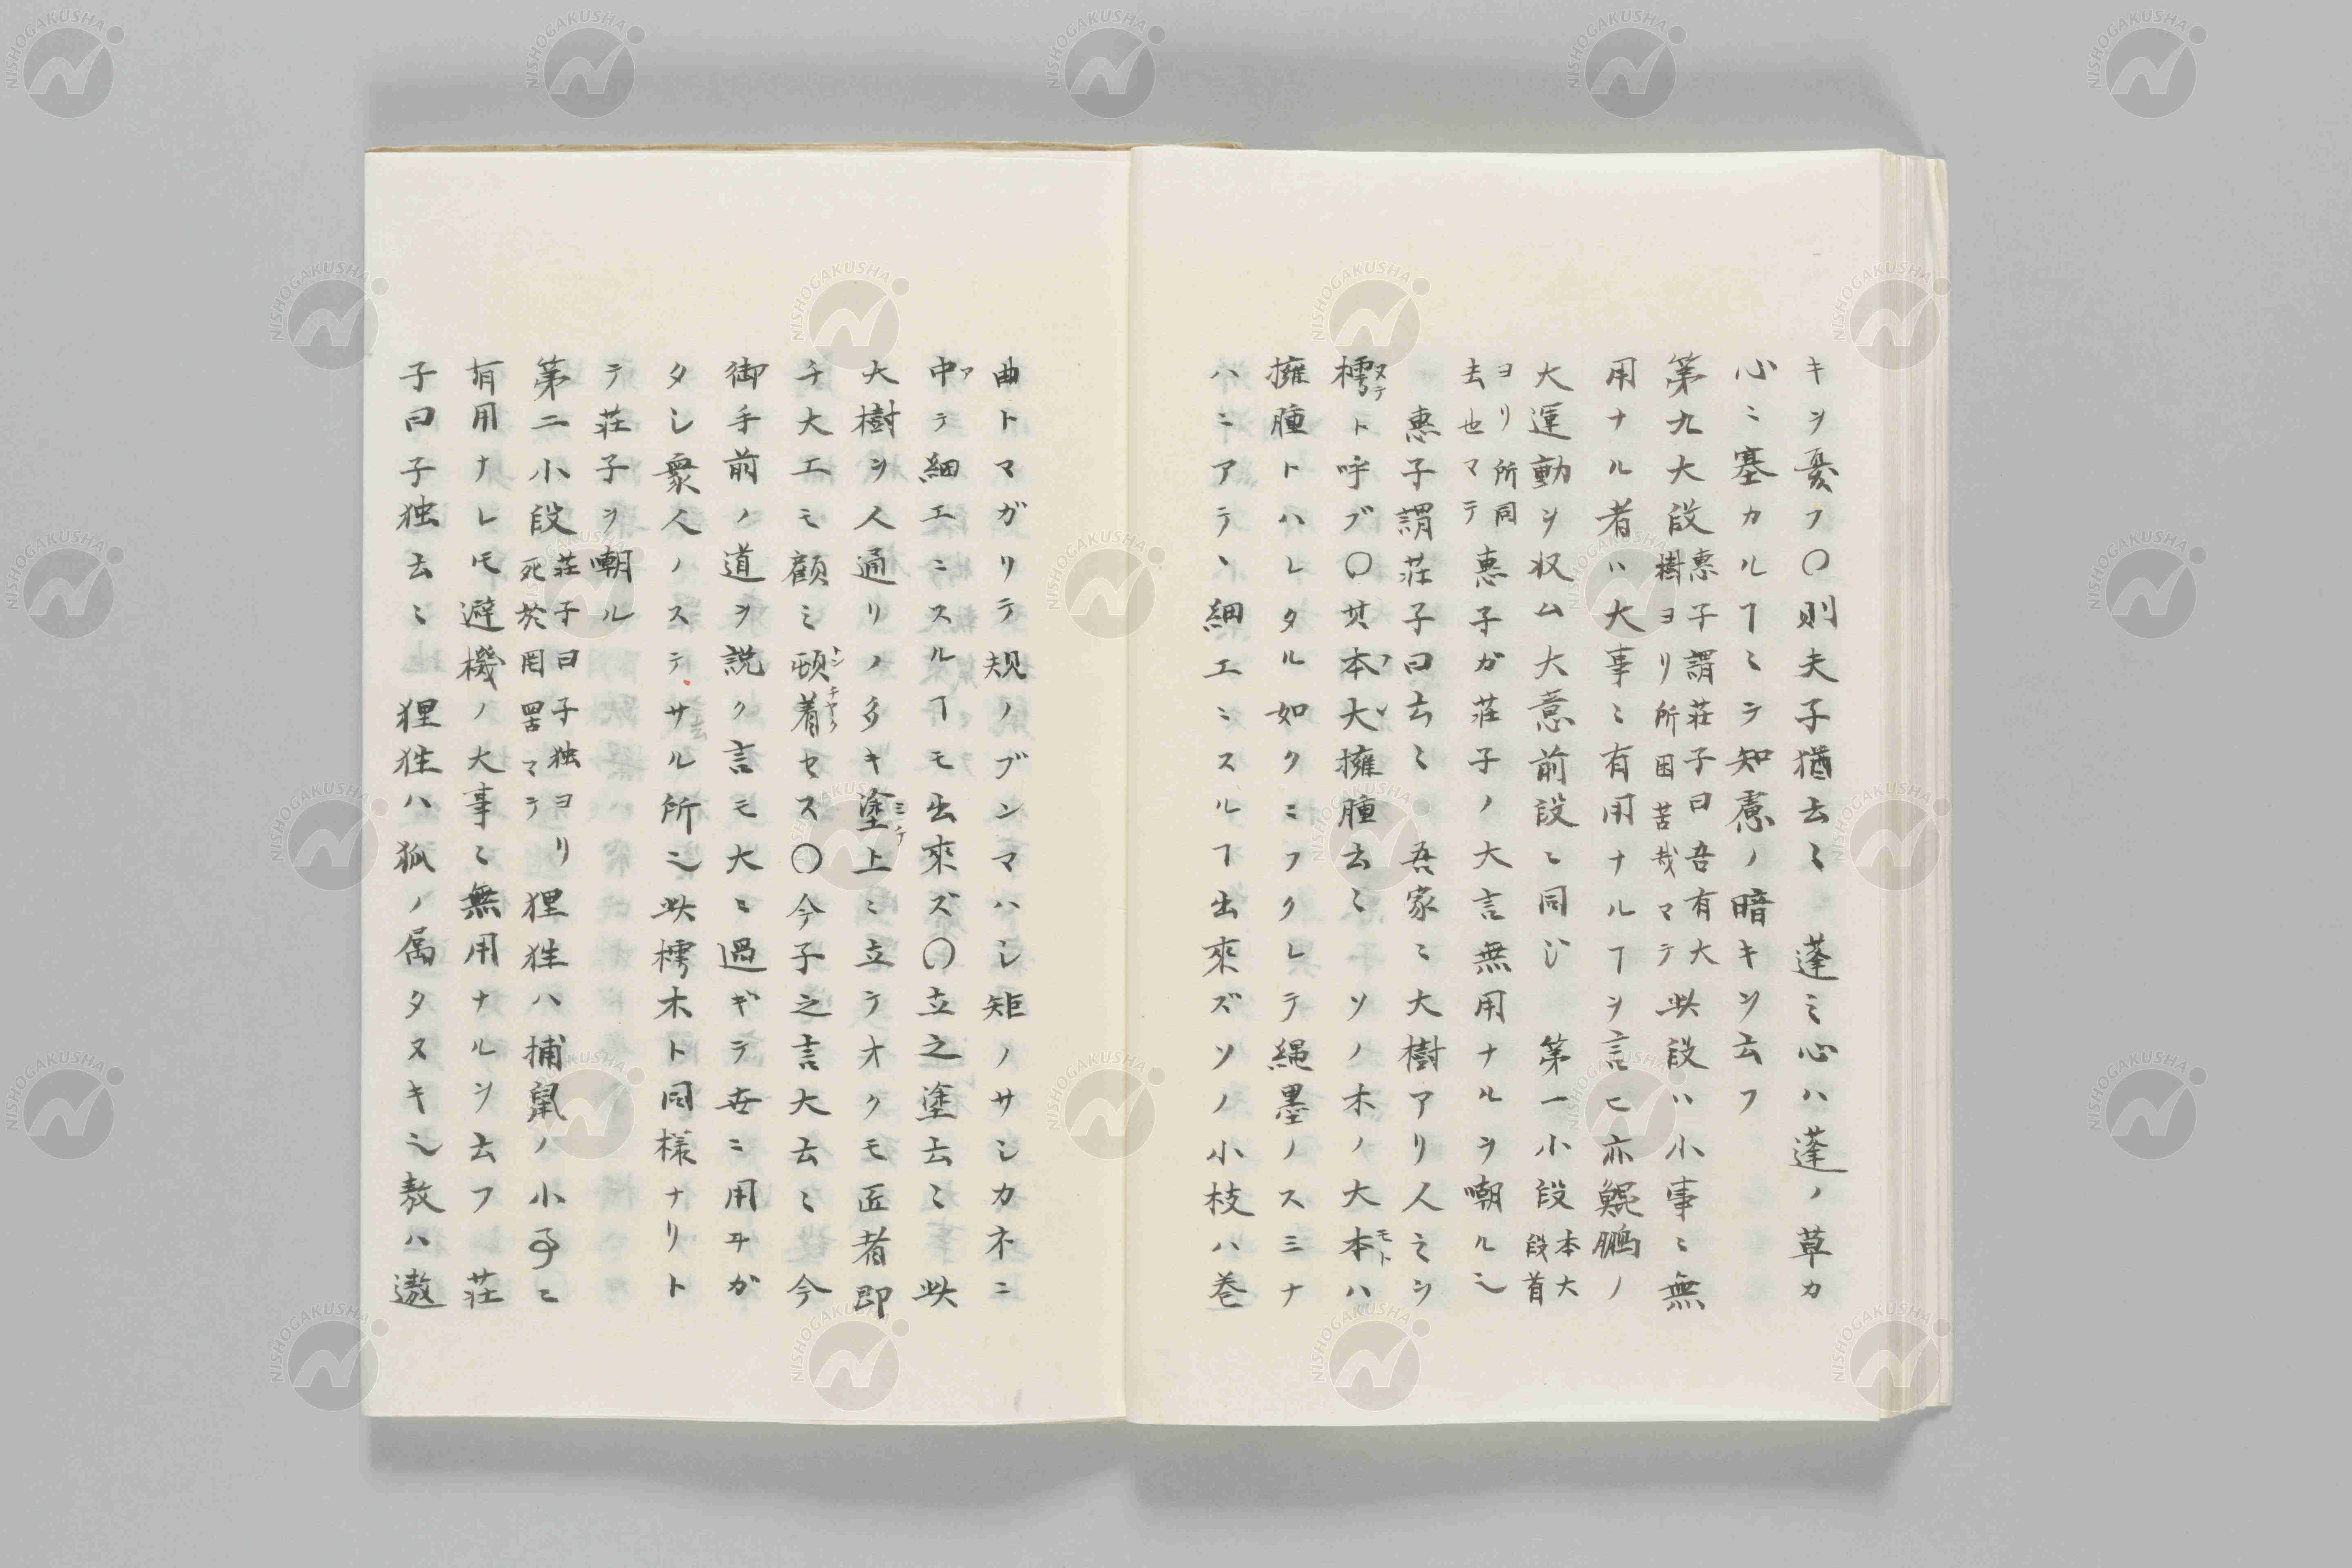 キヲ憂フ〇則夫子猶去〻　蓬〻心ハ蓬ノ草カ
心ニ塞カルヿ〻テ知慮ノ暗キヲ云フ
第九大段惠子謂荘子曰吾有大樹ヨリ所困苦哉マテ此段ハ小事〻無
用ナル者ハ大事〻有用ナルヿヲ言ヒ亦鯤鵬ノ
大運動ヲ収ム大意前段〻同じ　第一小段本大段首
ヨリ所同去也マテ惠子ガ荘子ノ大言無用ナルヲ嘲ル也
惠子謂荘子曰去〻　吾家〻大樹アリ人之ヲ
樗ヌテト呼ブ〇其本大擁腫去〻ソノ木ノ大本モトハ
擁腫トハレタル如クニフクレテ縄墨ノスミナ
ハニアテヽ細工ニスルヿ出來ズソノ小枝ハ巻
曲トマガリテ規ノブンマハシ矩ノサシカネニ
中アテテ細工ニスルヿモ出來ズ〇立之塗去〻此
大樹ヲ人通リノ多キ塗上ミテ〻立テオクモ匠者即
チ大工モ顧ミ頓着トンチヤクセス〇今子之言大去〻今
御手前ノ道ヲ説ク言モ大〻過ギテ世ニ用ヰガ
タシ衆人ノステサル所也此樗木ト同様ナリト
テ荘子ヲ嘲ル
第二小段荘子曰子独ヨリ死於罔罟マテ狸狌ハ捕鼠ノ小事〻
有用ナレ𪜈避機ノ大事〻無用ナルヲ去フ　荘
子曰子独去〻　狸狌ハ狐ノ属タヌキ也敖ハ遨